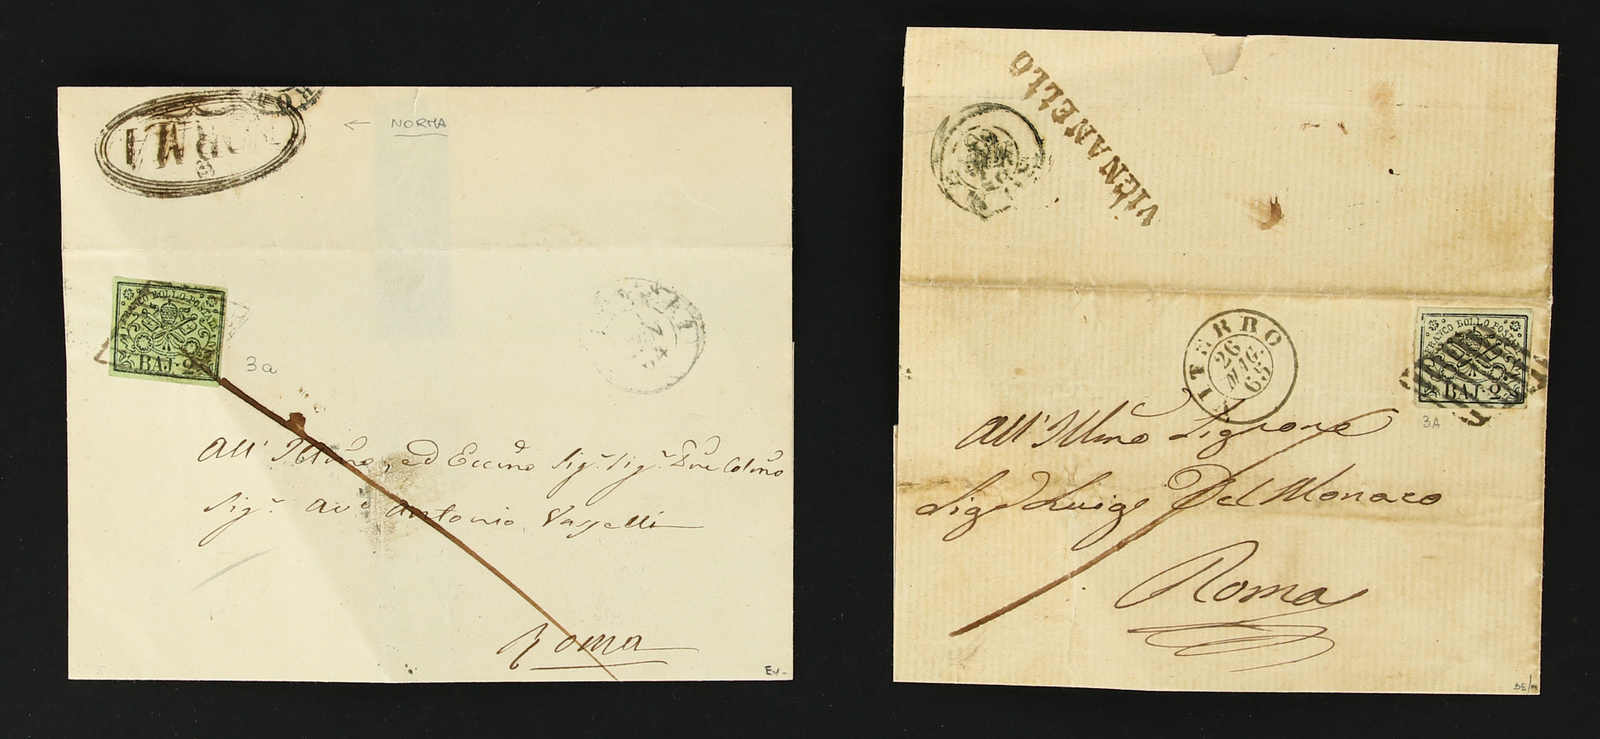 NORMA
← NORMA
FRANCO BOLLO POSTALE
BAJ·2
3a
64
All' Illmo, ed Eccmo Sig.r Sig.r
Sig.r Avv Antonio Vasselli
Roma
VIGNANELLO
VITERBO
26
MAG.
65
FRANCO BOLLO POSTALE
BAJ·2
3A
All' Illmo Signore
Sig. Luigi Del Monaco
Roma